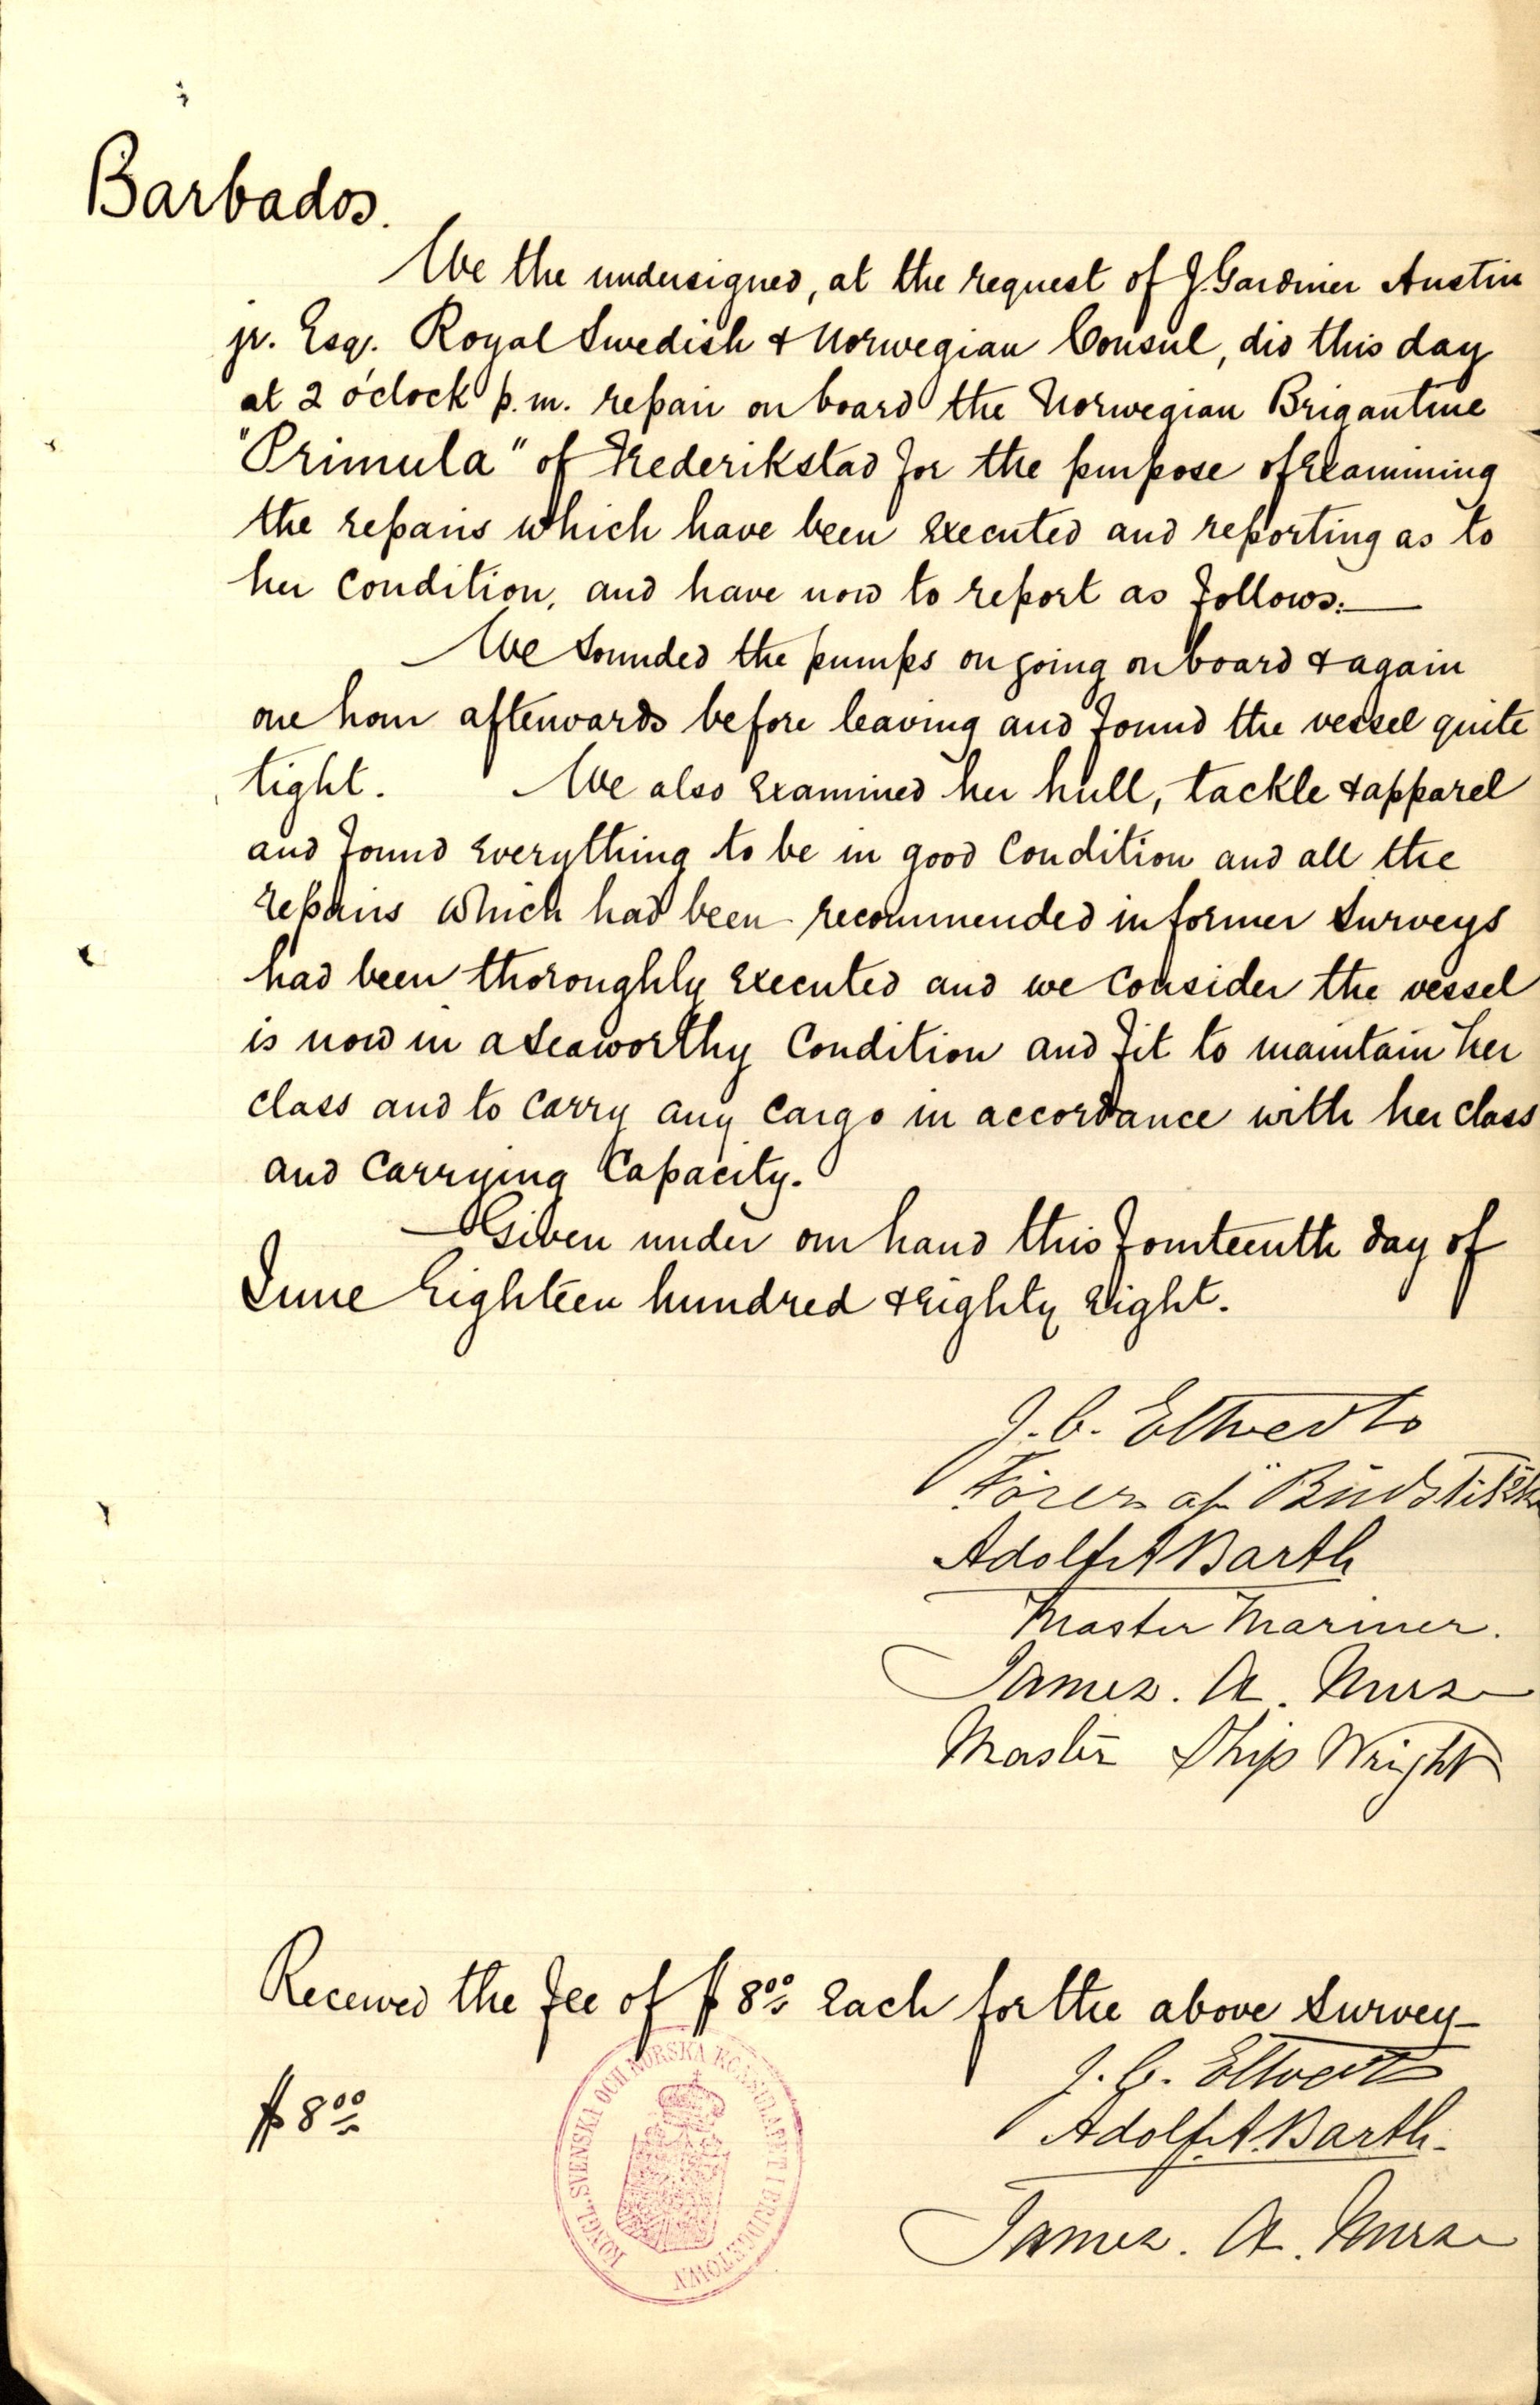 Barbados.
We the undersigned, at the request of J. Gardiner Austin
jr. Esq. Royal Swedish & Norwegian Consul, did this day
at 2 o'clock p.m. repair on board the Norwegian Brigantine
"Primula" of Frederikstad for the purpose of examining
the repairs which have been executed and reporting as to
her condition, and have now to report as follows:—
We sounded the pumps on going on board & again
one hour afterwards before leaving and found the vessel quite
tight. We also examined her hull, tackle & apparel
and found everything to be in good condition and all the
repairs which had been recommended in former surveys
had been thoroughly executed and we consider the vessel
is now in a seaworthy condition and fit to maintain her
class and to carry any cargo in accordance with her class
and carrying capacity.
Given under our hand this fourteenth day of
June Eighteen hundred & eighty eight.
J. C.
Förer af
Adolf A Barth
Master Mariner.
James. A. Nurse
Master Ship Wright
Received the fee of $8.00 each for the above survey—
J. C.
$8.00
Adolf. A. Barth.
James. A. Nurse
KONGL. SVENSKA OCH NORSKA KONSULATET I BRIDGETOWN